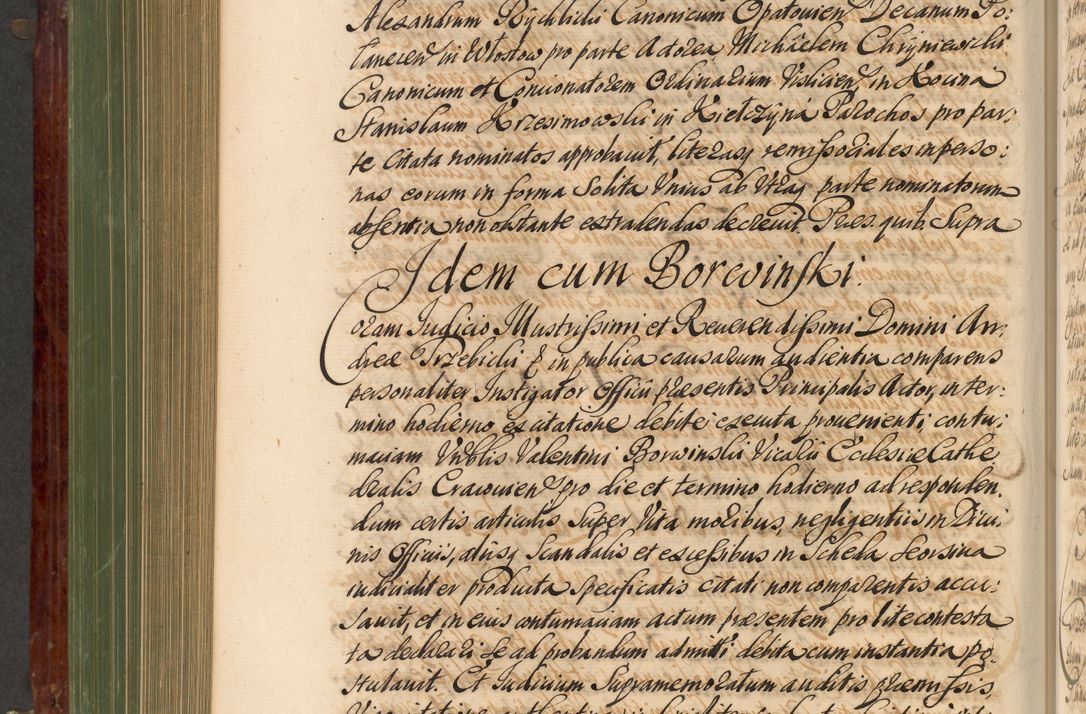 Alexandrum Bychlicki Canonicum Opatovien Decanum Po:
lanecen in Włostow pro parte Actorea Michaelem Chryniewicki
Canonicum et Concionatorem Ordinarium Vislicien, in Kocina
Stanislaum Krzesimowski in Kiełczyna Parochos pro par:
te Citata nominatos approbavit, literasq remissoriales in perso:
nas eorum in forma Solita Unius ab Utraq parte nominatorum
absentia non obstante extradendas decrevit. Præs. quib. Supra
Idem cum Borewinski.
Coram Iudicio Illustrissimi et Reverendissimi Domini An:
dreæ Trzebicki & in publica causarum audientia comparens
personaliter Instigator Officii præsentis Principalis Actor, in ter:
mino hodierno ex citatione debite executa provenienti, contu:
maciam Vnblis Valentini Borwinski Vicarii Ecclesiæ Cathe
dralis Cracovien pro die et termino hodierno ad responden.
dum certis articulis Super Vita moribus, negligentiis in Divi:
nis Officiis, aliisq Scandalis et excessibus in Scheda Seorsiva
iudicialiter producta specificatis citati non comparentis accu:
savit, et in eius contumaciam actum præsentem pro lite contesta
ta declarari se ad probandum admitti debita cum instantia po.
stulavit. Et Iudicium Supramemoratum auditis præmissis,